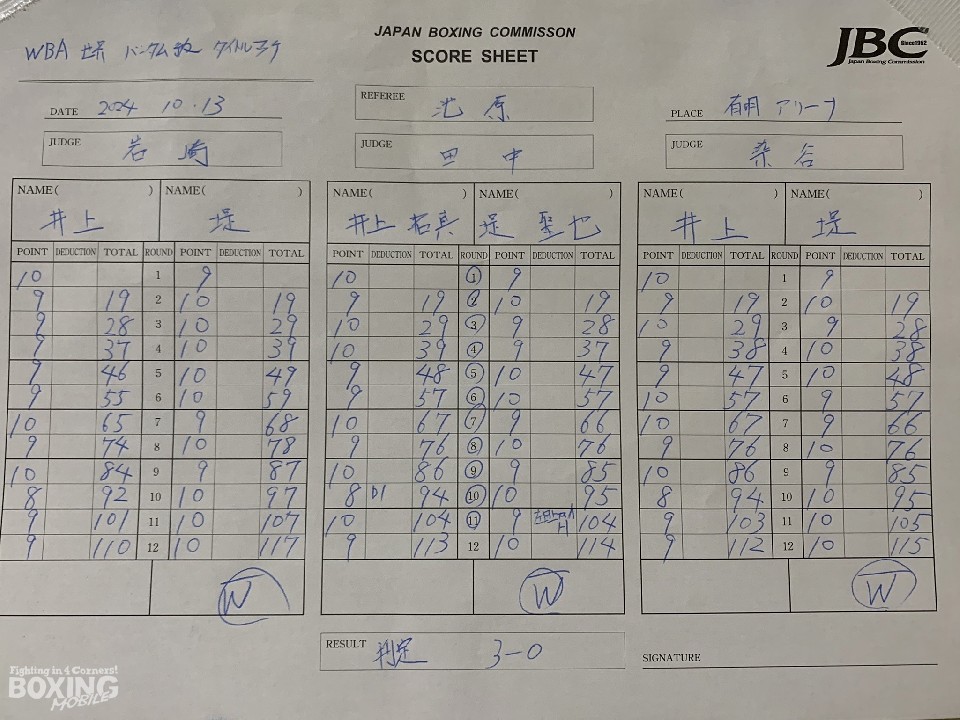 JAPAN BOXING COMMISSON
SCORE SHEET
JBC Since1952
Japan Boxing Commission
WBA 世界 バンタム級 タイトルマッチ
DATE 2024 10.13
REFEREE 池原
PLACE 有明アリーナ
JUDGE 岩崎
JUDGE 田中
JUDGE 染谷
NAME( ) NAME( ) NAME( ) NAME( ) NAME( ) NAME( )
井上 堤 井上 拓真 堤 聖也 井上 堤
POINT DEDUCTION TOTAL ROUND POINT DEDUCTION TOTAL POINT DEDUCTION TOTAL ROUND POINT DEDUCTION TOTAL POINT DEDUCTION TOTAL ROUND POINT DEDUCTION TOTAL
10 1 9 10 1 9 10 1 9
9 19 2 10 19 9 19 2 10 19 9 19 2 10 19
9 28 3 10 29 10 29 3 9 28 10 29 3 9 28
9 37 4 10 39 10 39 4 9 37 9 38 4 10 38
9 46 5 10 49 9 48 5 10 47 9 47 5 10 48
9 55 6 10 59 9 57 6 10 57 10 57 6 9 57
10 65 7 9 68 10 67 7 9 66 10 67 7 9 66
9 74 8 10 78 9 76 8 10 76 9 76 8 10 76
10 84 9 9 87 10 86 9 9 85 10 86 9 9 85
8 92 10 10 97 8 D1 94 10 10 95 8 94 10 10 95
9 101 11 10 107 10 104 11 9 104 9 103 11 10 105
9 110 12 10 117 9 113 12 10 114 9 112 12 10 115
W W W
RESULT 判定 3-0
SIGNATURE
Fighting in 4 Corners!
BOXING
MOBILE